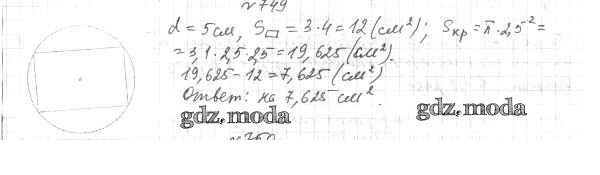 № 749
d = 5 см, S▭ = 3·4 = 12 (см²); Sкр = π·2,5² =
= 3,1·2,5·2,5 = 19,625 (см²).
19,625 - 12 = 7,625 (см²)
Ответ: на 7,625 см².
gdz.moda
gdz.moda